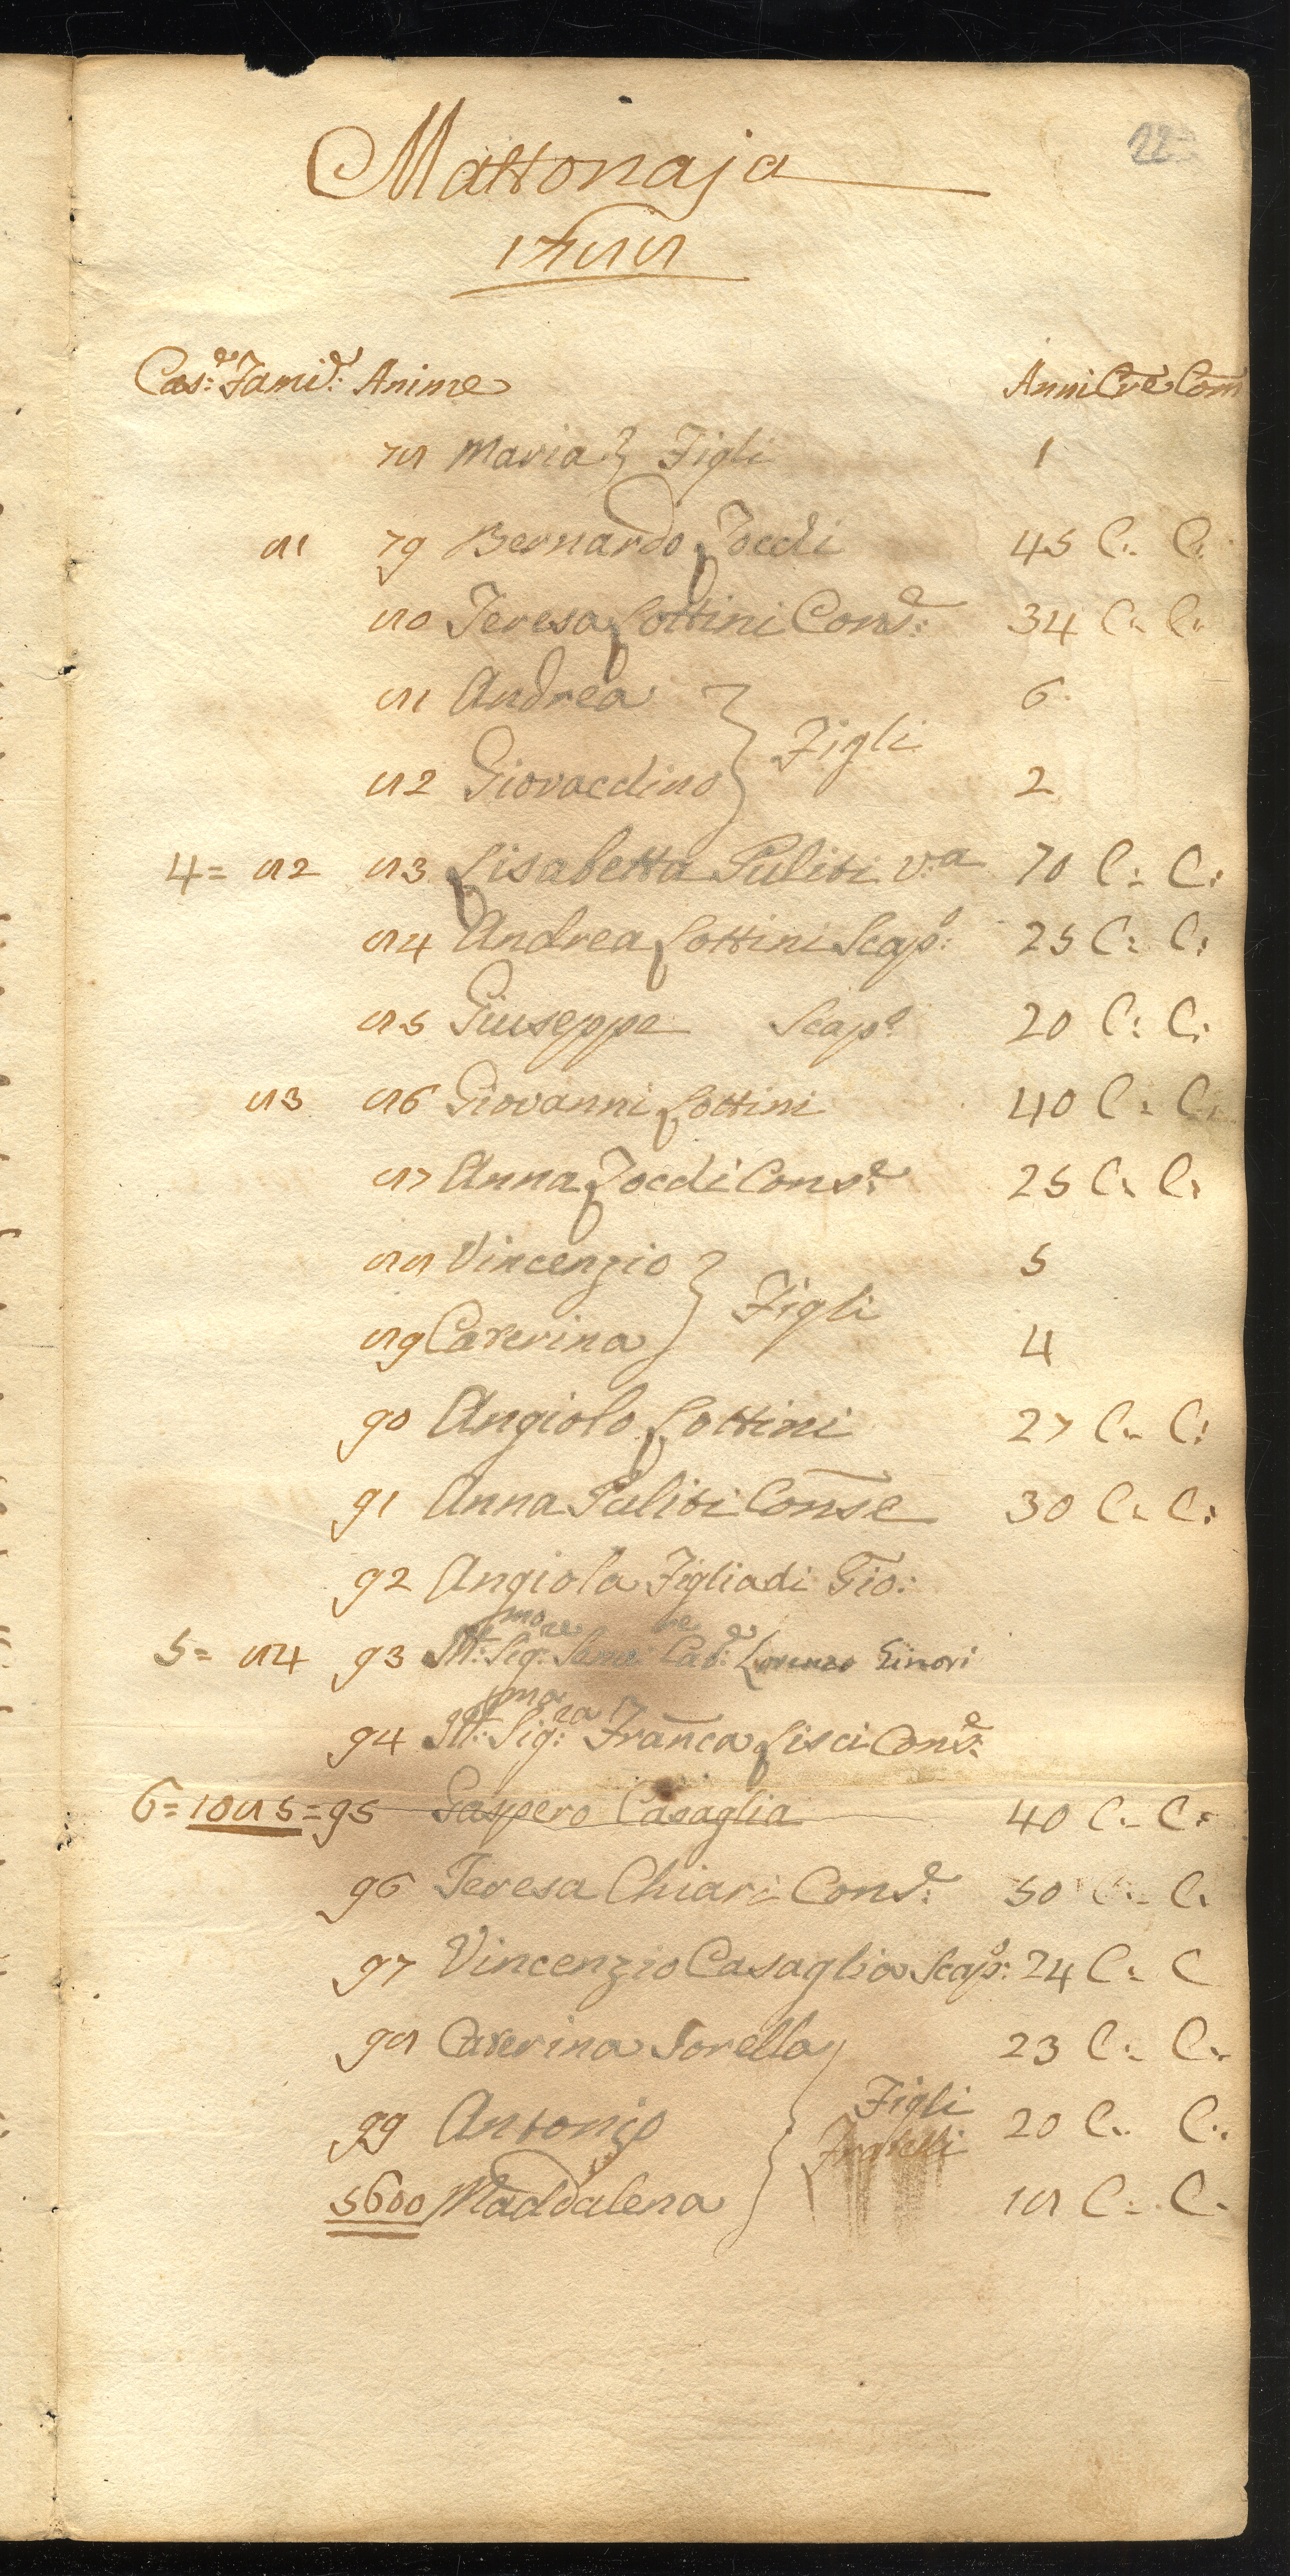 22
Mattonaja
1788
Cas:e Fami:e Anime Anni Cre Com
78 Maria } Figli 1
81 79 Bernardo Zocchi 45 C: C:
80 Teresa Lottini Cons:e 34 C: C:
81 Andrea 6
} Figli
82 Giovacchino 2
4= 82 83 Lisabetta Puliti V:a 70 C: C:
84 Andrea Lottini Scap:o 25 C: C:
85 Giuseppe Scap:o 20 C: C:
83 86 Giovanni Lottini 40 C: C:
87 Anna Zocchi Cons:e 25 C: C:
88 Vincenzio 5
} Figli
89 Caterina 4
90 Angiolo Lottini 27 C: C:
91 Anna Puliti Conse 30 C: C:
92 Angiola Figlia di Gio:
5= 84 93 Ill:mo Sig:re Cav:e Lorenzo Ginori
94 Ill:ma Sig:ra Franca Lisci Cons:e
6=1085=95 Gaspero Casaglia 40 C: C:
96 Teresa Chiari Cons:e 50 C: C:
97 Vincenzio Casaglia Scap:o 24 C: C
98 Caterina Sorella 23 C: C:
99 Antonio } Figli 20 C: C:
Fratelli
5600 Maddalena 18 C: C: